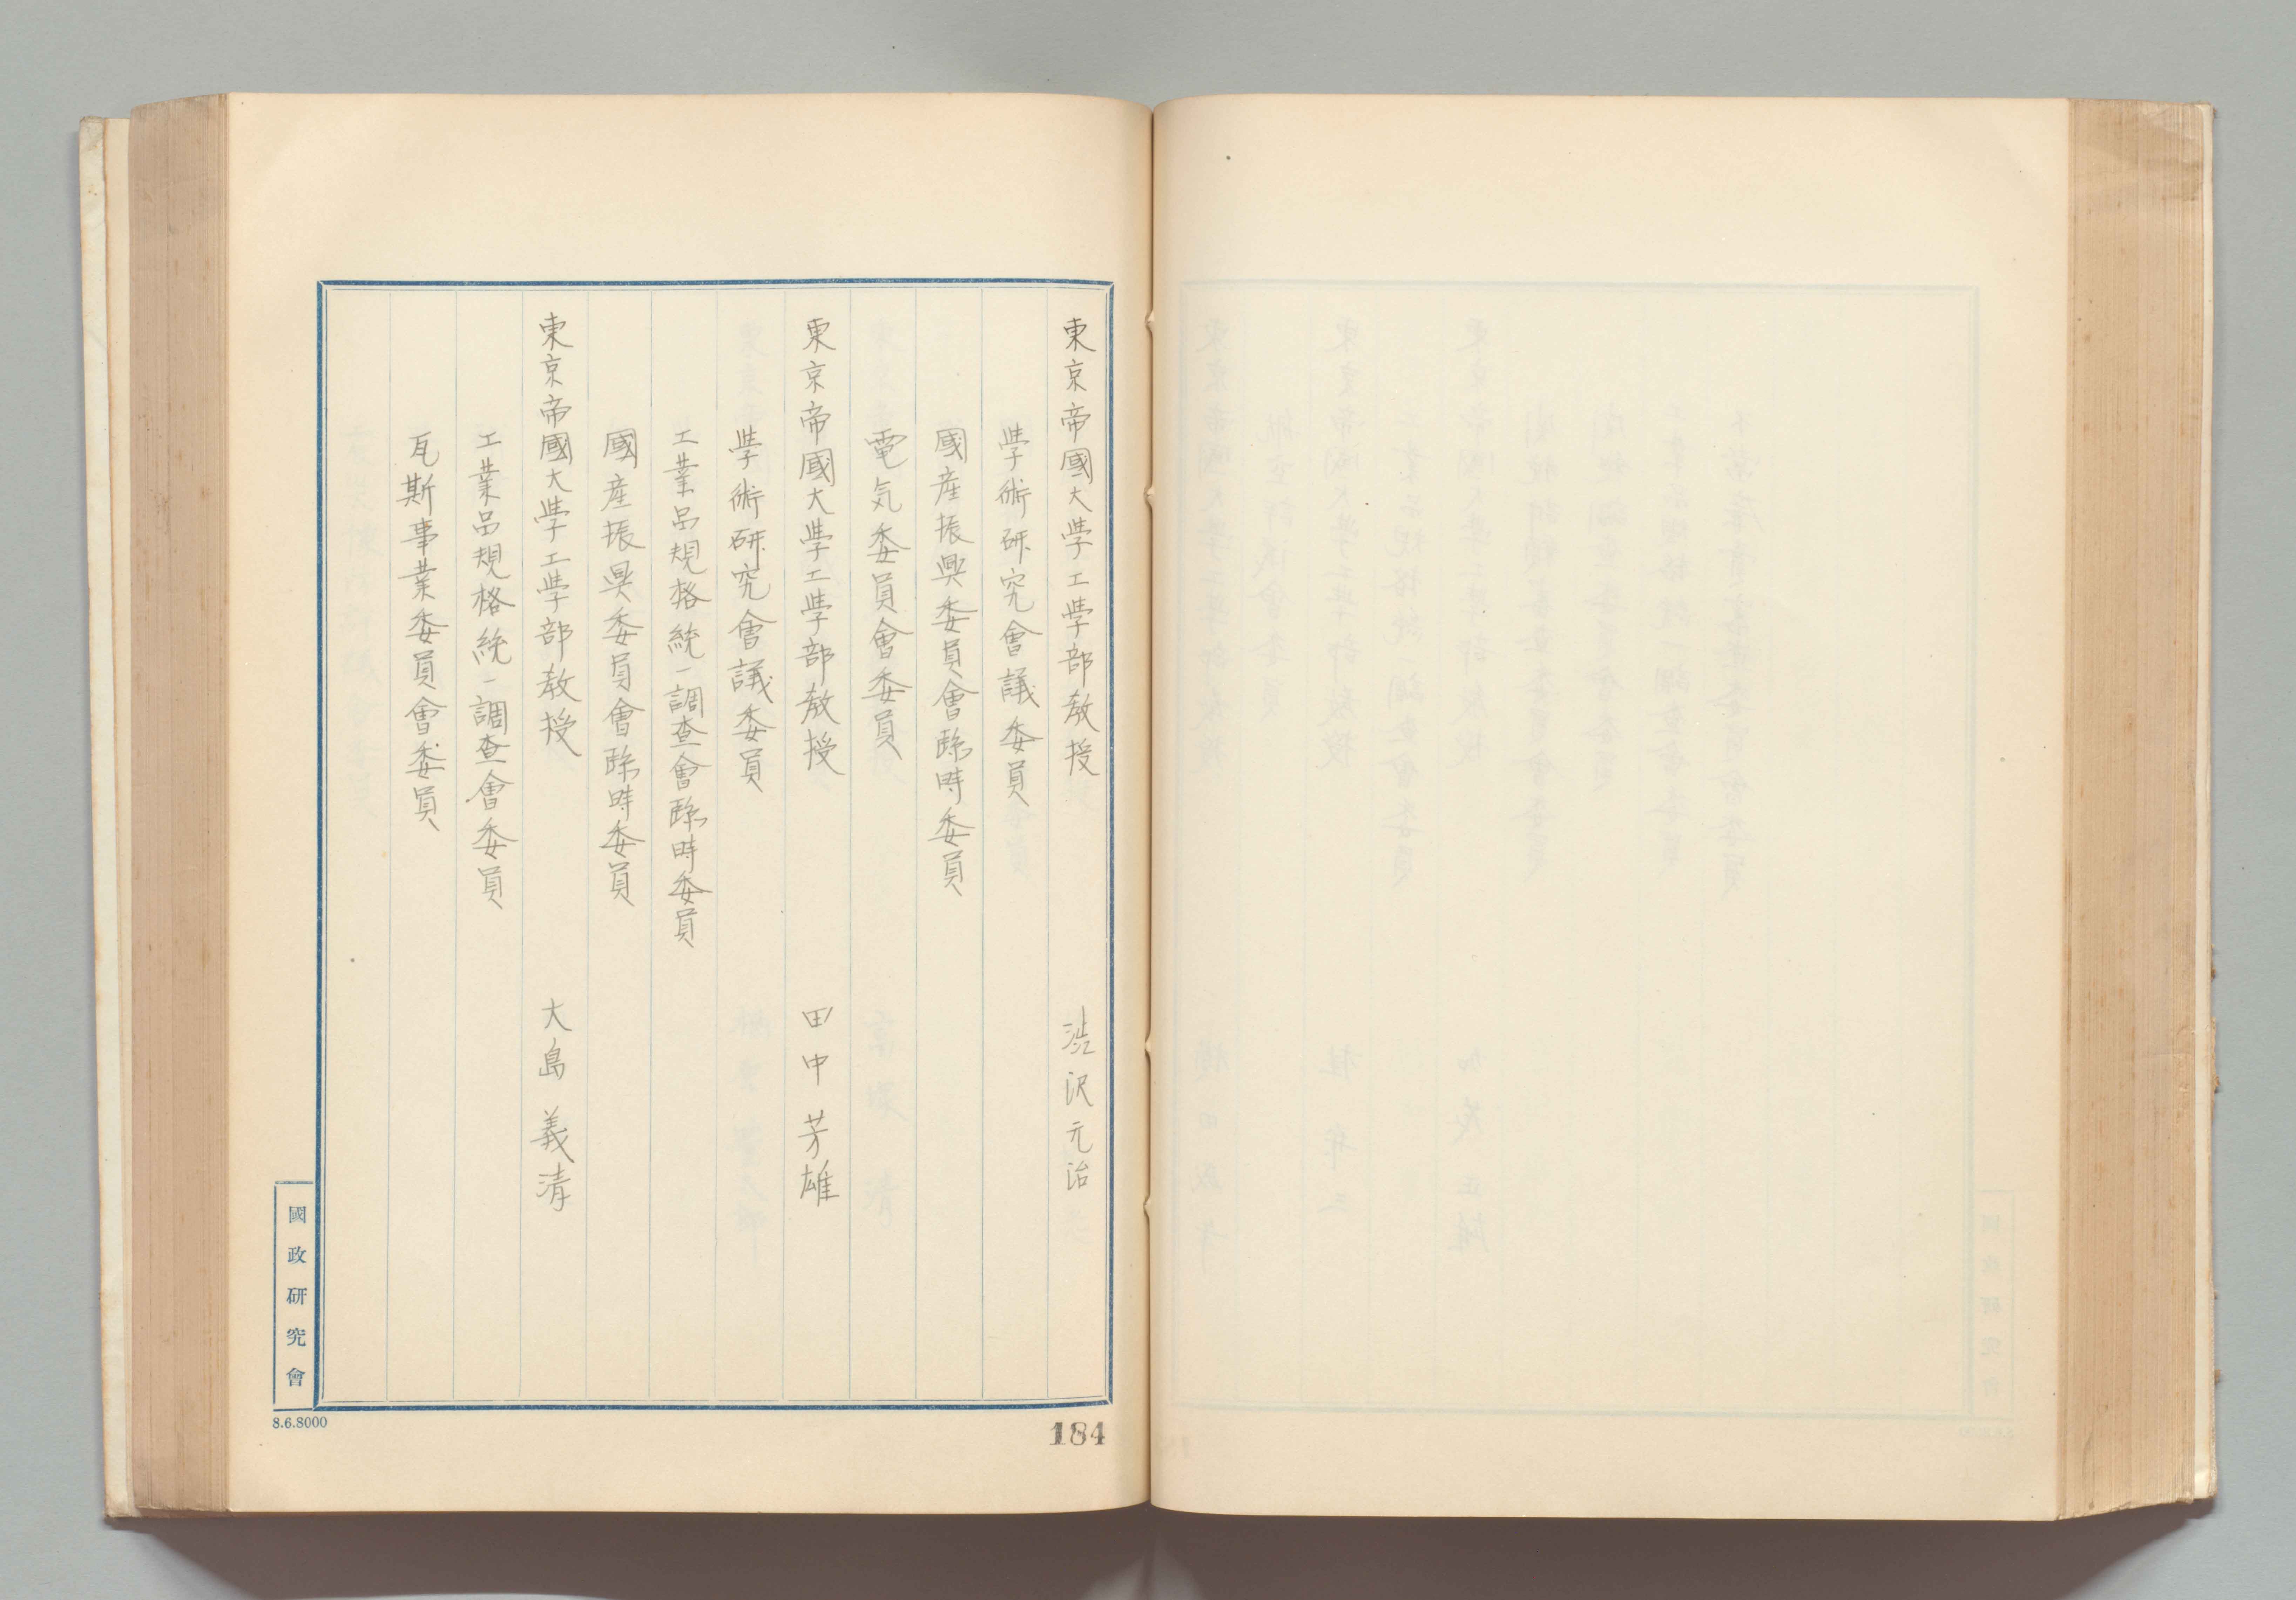 東京帝國大學工學部教授　澁沢元治
學術研究會議委員
國産振興委員會臨時委員
電気委員會委員
東京帝國大學工學部教授　田中芳雄
學術研究會議委員
工業品規格統一調査會臨時委員
國産振興委員會臨時委員
東京帝國大學工學部教授　大島義清
工業品規格統一調査會委員
瓦斯事業委員會委員
國政研究會
8.6.8000
184